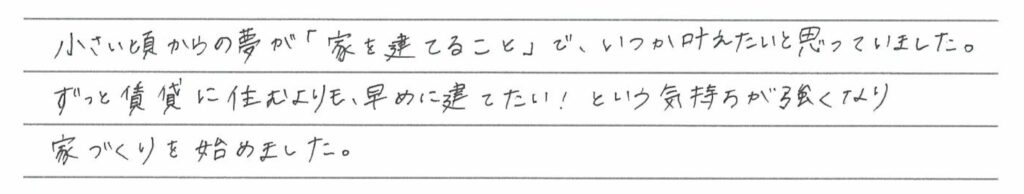 小さい頃からの夢が「家を建てること」で、いつか叶えたいと思っていました。
ずっと賃貸に住むよりも、早めに建てたい！という気持ちが強くなり
家づくりを始めました。